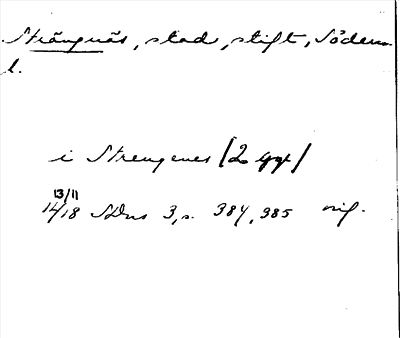 Strängnäs, stad, stift, Söderm.
l.
i Strengenes (2 ggr)
13/11
14/18 SDns 3, s. 384, 385 orig.